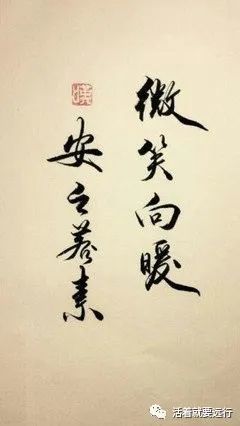 微笑向暖
安之若素
活着就要远行